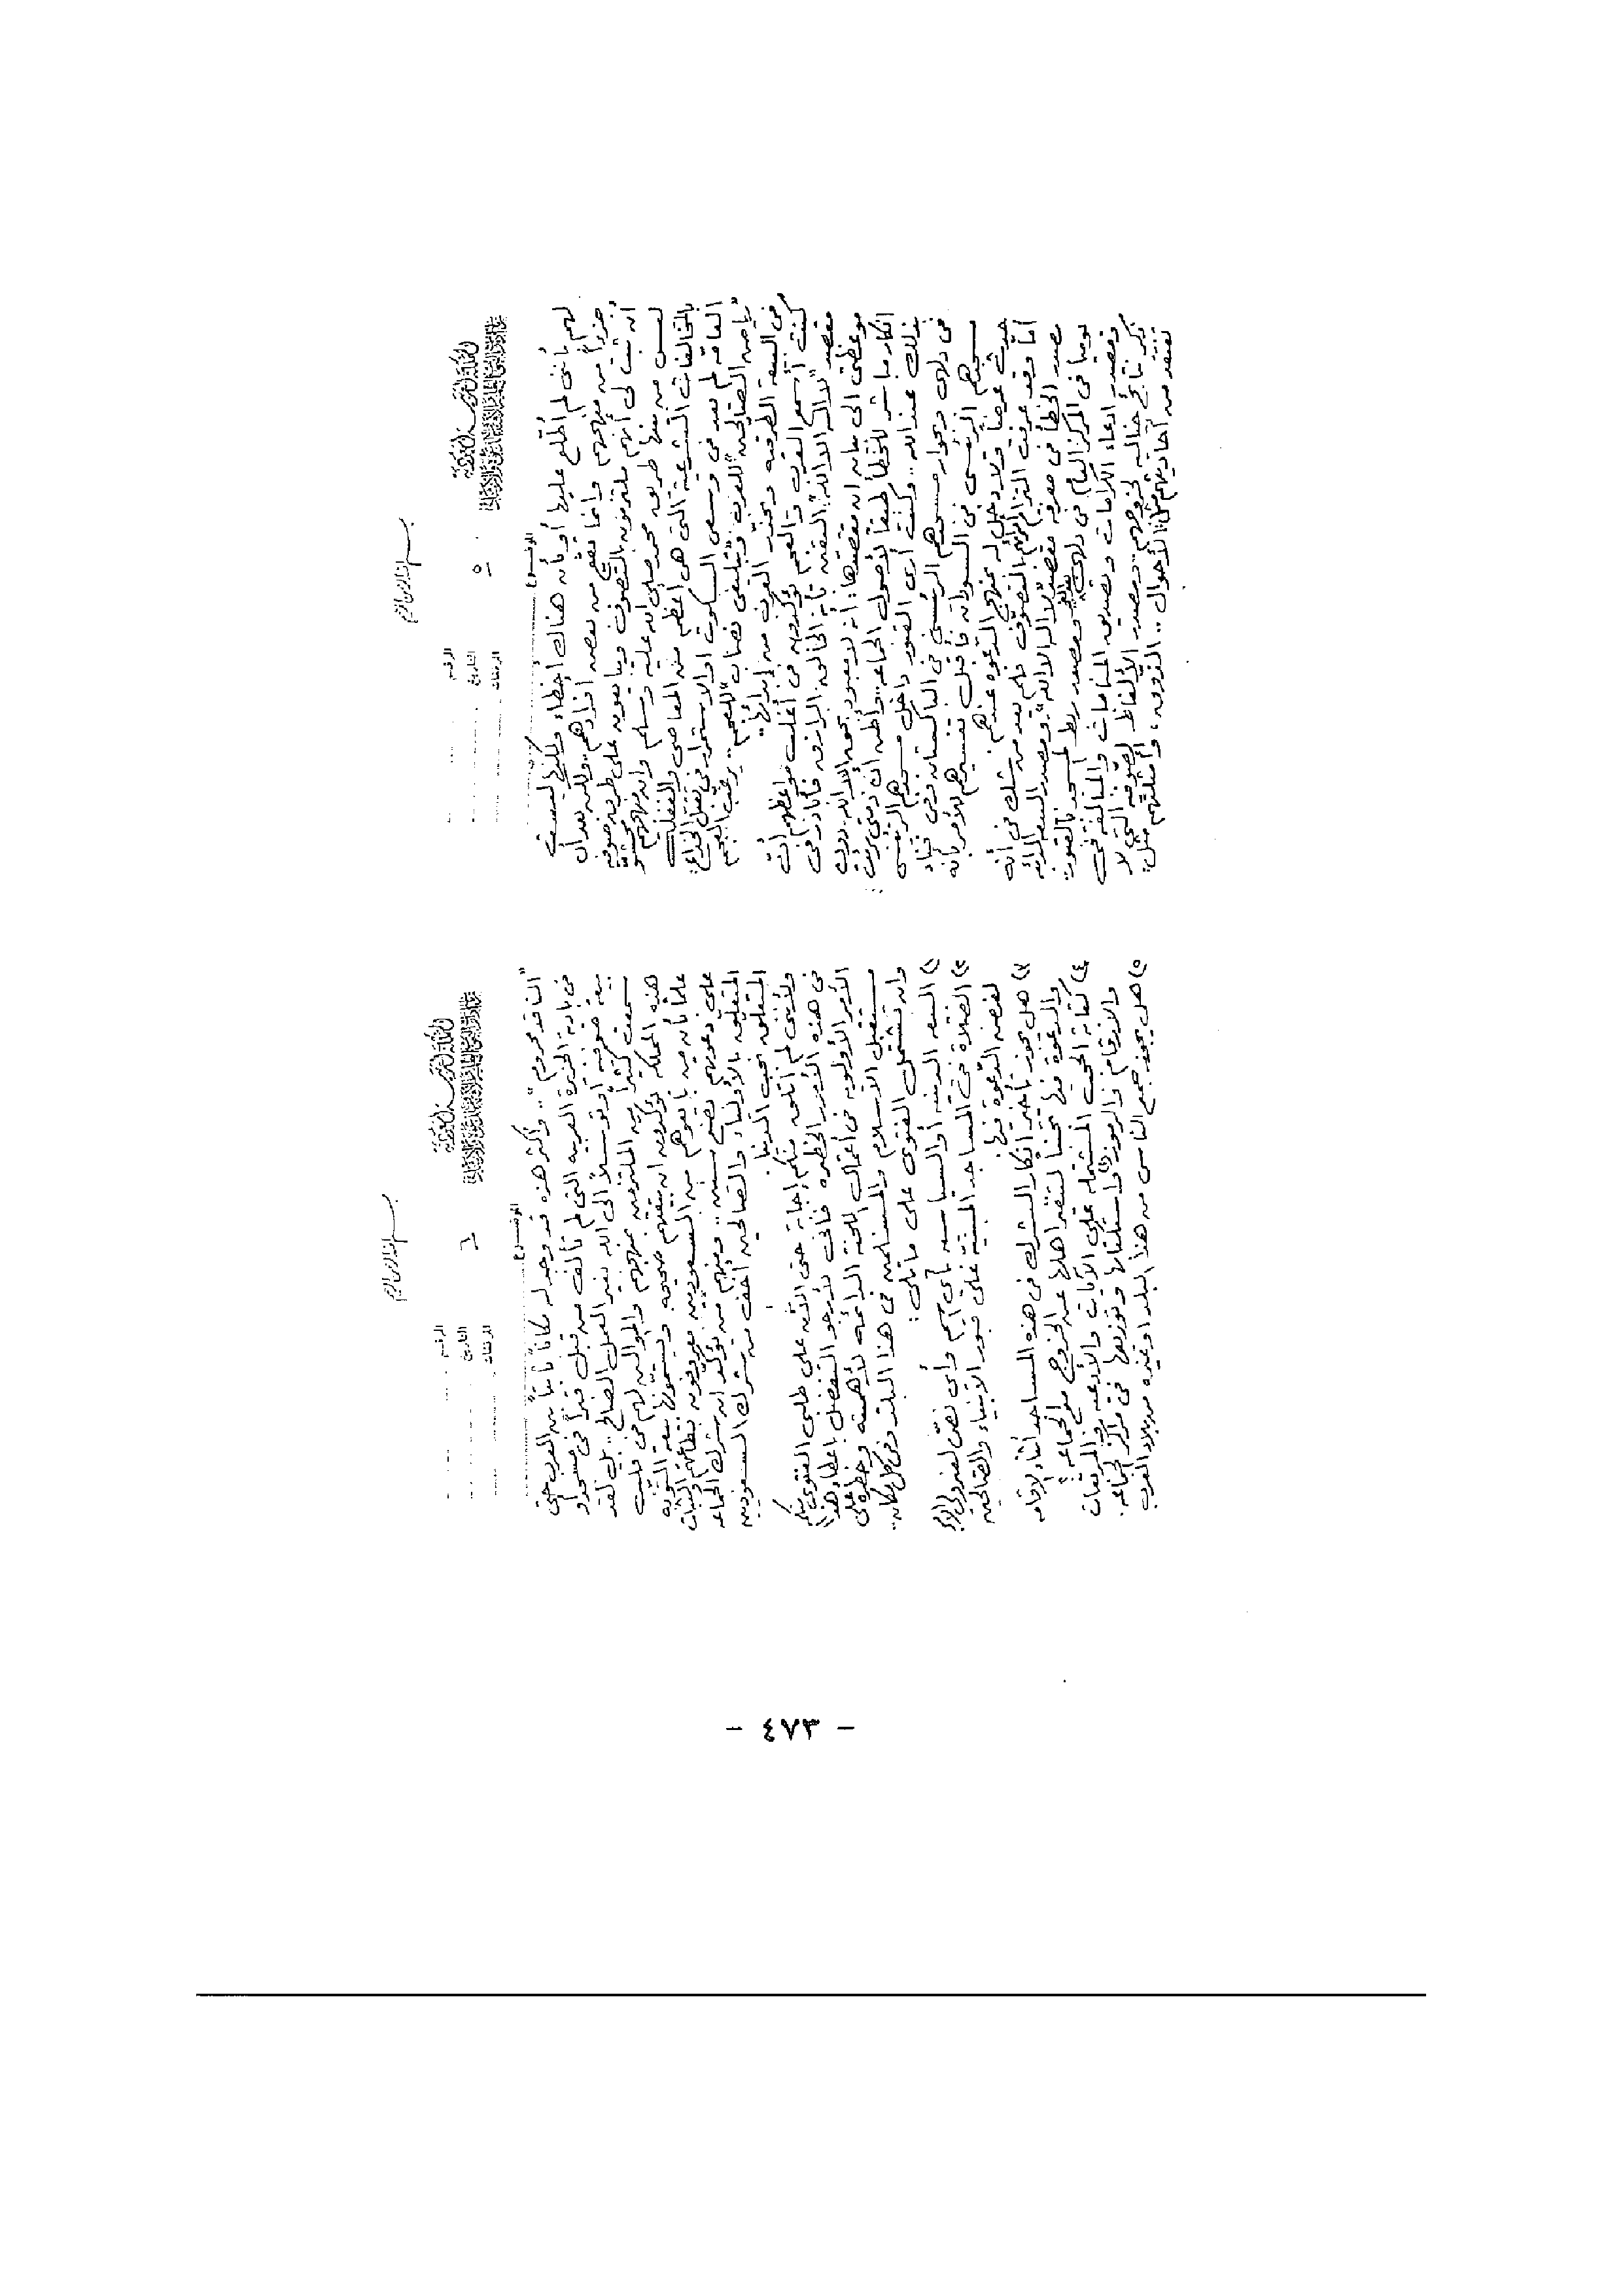 بسم الله الرحمن الرحيم
المملكة العربية السعودية
٥
الرقم
التاريخ
المرفقات
الموضوع
لهم بأنني لم أطلع عليها أو بأن هناك أخطاء ولكنها ليست
جزءاً من منهجهم وإنما يقع من بعض أفرادهم. ولكن بعد أن
أن ثبت لي أنهم ملتزمون بالتصوف ويبايعون على طرق صوفية
ليس من بينها طريق محمد صلى الله عليه وسلم وأن منهجهم
بالمخالفات الشرعية التي هي أعظم من المعاصي والغفلة
العامة لم يعد في وسعي السكوت أو الاستمرار في
رياض الصالحين للعرب وتبليغي نصاب للعجم
في البيعة الطرقية ويحذر العرب من إبدائها
كنت أسمع العرب والعجم يؤكدون في أغلب مواعظهم أن
مقصد "لا إله إلا الله" اليقين بأن الله الخالق الرازق فأبادر في
موعظتي إلى بيان أن مقصدها: أنه لا معبود بحق إلا الله دون
إنكار مباشر للخطأ طبقاً لأصول الجماعة.. وأظن أن ذمتي برئت
بذلك عند الله.. وكنت أرى القبور داخل مسجدهم الرئيسي
في دلهي وبجوار مسجدهم الرئيسي في الباكستان وفي فناء
مسجدهم الرئيسي في السودان فأقبل تفسيرهم للأمر بأنه
حدث عرضاً ولا دخل له بمنهج الدعوة عندهم.
أما وقد عرفت التزامهم بالتصوف فلم يعد من شك في أنه
مصدر الخطأ في معرفة مقصد "لا إله إلا الله" ومصدر البيعة
ومصدر ربط المسجد بالقبور
ومصدر ادعاء الكرامات وتصديق المنامات والمبالغة في
ذكر نتائج خيالية لخروجهم.. ومصدر الألفاظ الصوفية التي لا
تفتقد من أحاديثهم مثل: الأحوال.. الذوق، وأمثلتهم مثل:
بسم الله الرحمن الرحيم
المملكة العربية السعودية
٦
الرقم
التاريخ
المرفقات
الموضوع
"الناقد محروم".. وأكثر هذه قد وجد له مكاناً نابياً بين العرب حتى
في بادية الجزيرة العربية التي لم تألف من قبل قبراً في مسجد أو
بيعة صوفية أو توسلاً إلى الله بغير العمل الصالح.. بل لقد
سمعت كثيراً من الملتزمين بمنهجهم والموالين لهم في قلب
هذه المملكة يؤكدون أن بيعتهم صحيحة ويسمونها بيعة التوبة
علماً بأن من بايعوهم من السعوديين معروفون
على دعوتهم بضع سنين.. ومنهم من يؤكد أن شرك الجماعة
المتعلق بالأولياء والصالحين أخف من شرك السعوديين
المتعلق بحب الدنيا.
ولأنني لم أتلق منكم إجابة حتى الآن على طلبي الفتوى منكم
في هذه الأمور الخطيرة فإني لأرجو التفضل بإعطاء هذا
الأمر الأولوية في أعمال اللجنة الدائمة لأهميته وخطره على
مستقبل الإسلام والمسلمين في هذا البلد وفي كل مكان..
وأن تشتمل الفتوى على ما يلي:
١) البيعة الدينية أو السياسية بأي اسم وأي نص لغير ولي الأمر
٢) الصلاة في المساجد المبنية على قبور الأنبياء والصالحين
لغرض الدعوة فيها.
٣) هل يجوز تأخير إنكار الشرك في هذه المساجد أثناء الإقامة
والدعوة فيها تجنباً لتنفير أهلها عن الخروج مع الجماعة؟
٤) كتابة الحجب المشتملة على الآيات والأدعية مع المربعات
والأرقام والرموز واستكتابها وتوزيعها في مراكز الجماعة.
٥) هل يجوز جمع الناس من هذا البلد أو غيره من بلاد العرب
- ٤٧٣ -